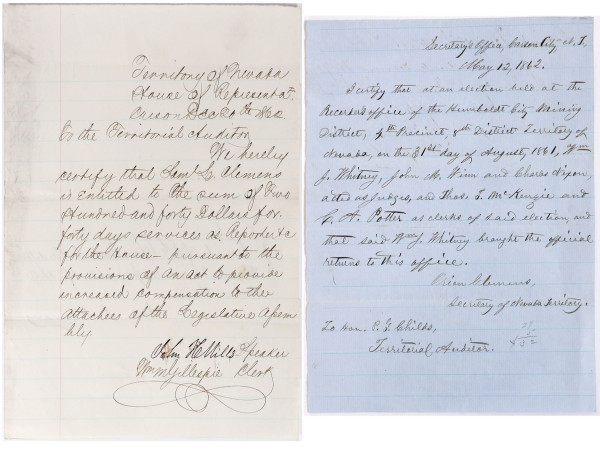 Territory of Nevada
House of Representat.
Carson Dec 20th 1862
To the Territorial Auditor
We hereby
certify that Saml L. Clemens
is entitled to the sum of Two
Hundred and forty Dollars for
forty days services as Reporter &c
for the House – pursuant to the
provisions of an act to provide
increased compensation to the
attachees of the Legislative Assem
bly.
John H Mills Speaker
Wm M Gillespie Clerk
Secretary's Office, Carson City, N. T.,
May 12, 1862.
I certify that at an election held at the
Recorder's office of the Humboldt City Mining
District, 4th Precinct, 8th District Territory of
Nevada, on the 31st day of August, 1861, Wm
J. Whitney, John M. Winn and Charles Nixon,
acted as judges, and Thos. L. McKenzie and
A. Potter as clerks of said election, and
that said Wm J. Whitney brought the official
returns to this office.
Orion Clemens,
Secretary of Nevada Territory.
To Hon. P. G. Childs,
Territorial Auditor.